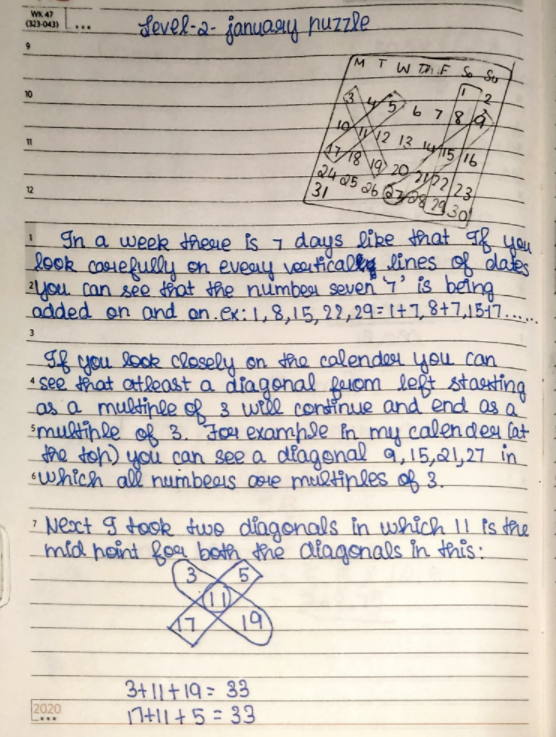 Wk 47
(323-043)
Level-2- january puzzle
M T W Th F Sa Su
1 2
3 4 5 6 7 8 9
10 11 12 13 14 15 16
17 18 19 20 21 22 23
24 25 26 27 28 29 30
31
9
10
11
12
1 In a week there is 7 days like that If you
look carefully on every vertically lines of dates
2 you can see that the number seven '7' is being
added on and on.ex: 1, 8, 15, 22, 29 = 1+7, 8+7, 15+7......
3
If you look closely on the calender you can
4 see that atleast a diagonal from left starting
as a multiple of 3 will continue and end as a
5 multiple of 3. For example in my calender (at
the top) you can see a diagonal 9, 15, 21, 27 in
6 which all numbers are multiples of 3.
7 Next I took two diagonals in which 11 is the
mid point for both the diagonals in this:
3 5
11
17 19
3+11+19 = 33
17+11+5 = 33
2020